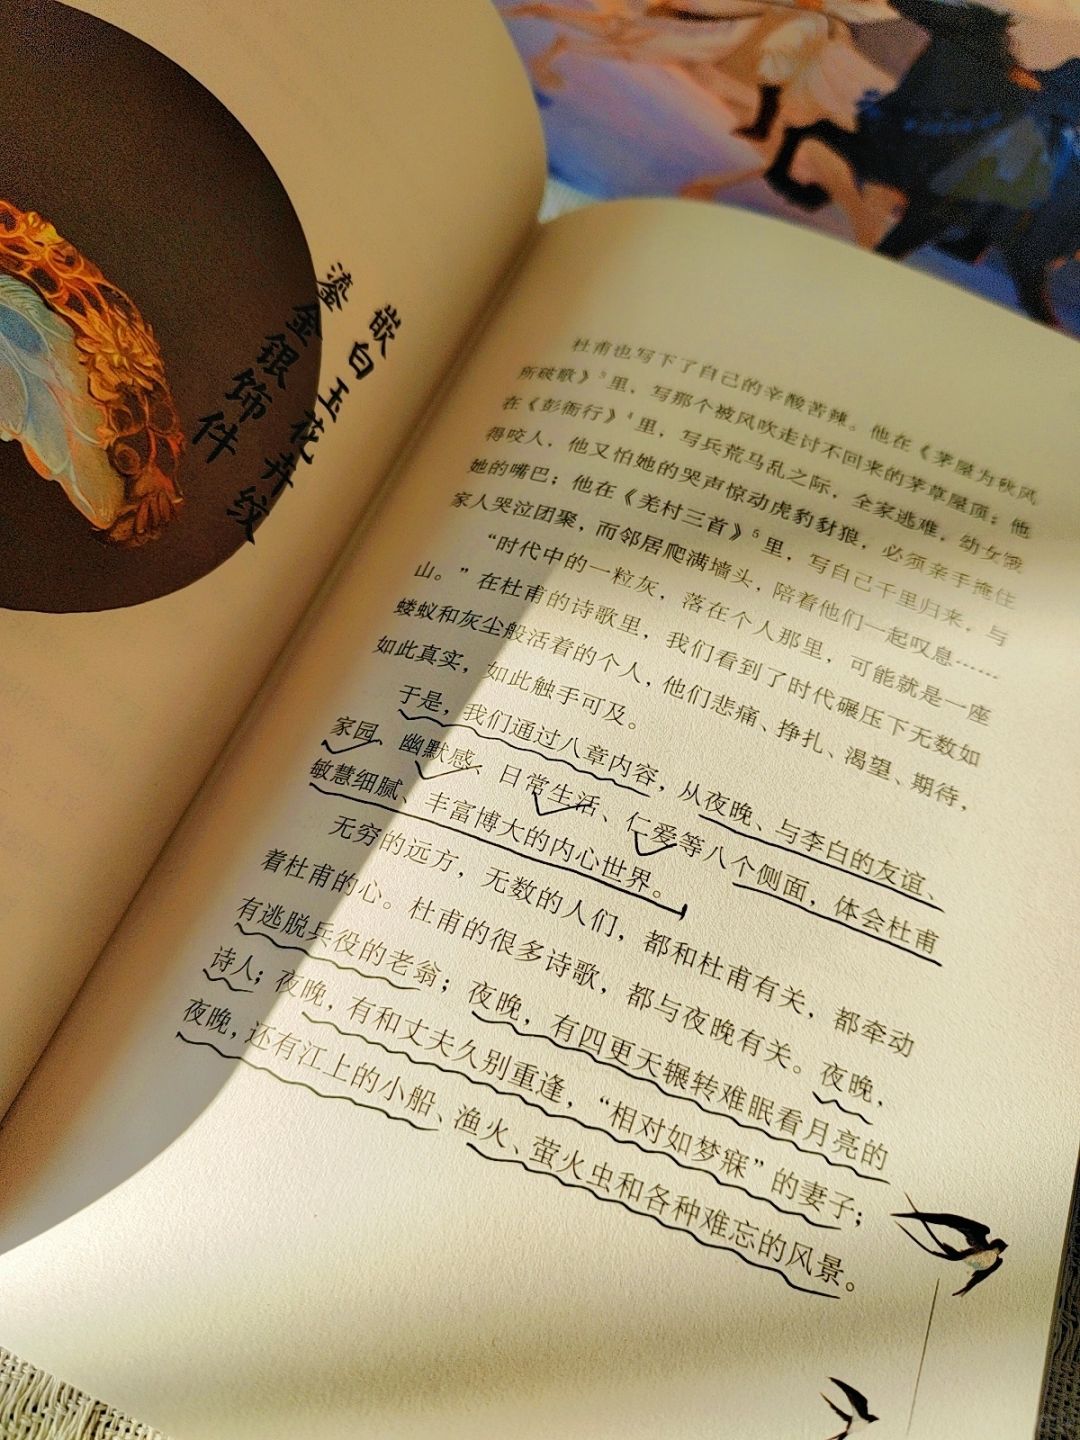 嵌白玉花卉纹
鎏金银饰件
杜甫也写下了自己的辛酸苦辣。他在《茅屋为秋风
所破歌》3里，写那个被风吹走讨不回来的茅草屋顶；他
在《彭衙行》4里，写兵荒马乱之际，全家逃难，幼女饿
得咬人，他又怕她的哭声惊动虎豹豺狼，必须亲手掩住
她的嘴巴；他在《羌村三首》5里，写自己千里归来，与
家人哭泣团聚，而邻居爬满墙头，陪着他们一起叹息……
“时代中的一粒灰，落在个人那里，可能就是一座
山。”在杜甫的诗歌里，我们看到了时代碾压下无数如
蝼蚁和灰尘般活着的个人，他们悲痛、挣扎、渴望、期待，
如此真实，如此触手可及。
于是，我们通过八章内容，从夜晚、与李白的友谊、
家园、幽默感、日常生活、仁爱等八个侧面，体会杜甫
敏慧细腻、丰富博大的内心世界。
无穷的远方，无数的人们，都和杜甫有关，都牵动
着杜甫的心。杜甫的很多诗歌，都与夜晚有关。夜晚，
有逃脱兵役的老翁；夜晚，有四更天辗转难眠看月亮的
诗人；夜晚，有和丈夫久别重逢，“相对如梦寐”的妻子；
夜晚，还有江上的小船、渔火、萤火虫和各种难忘的风景。